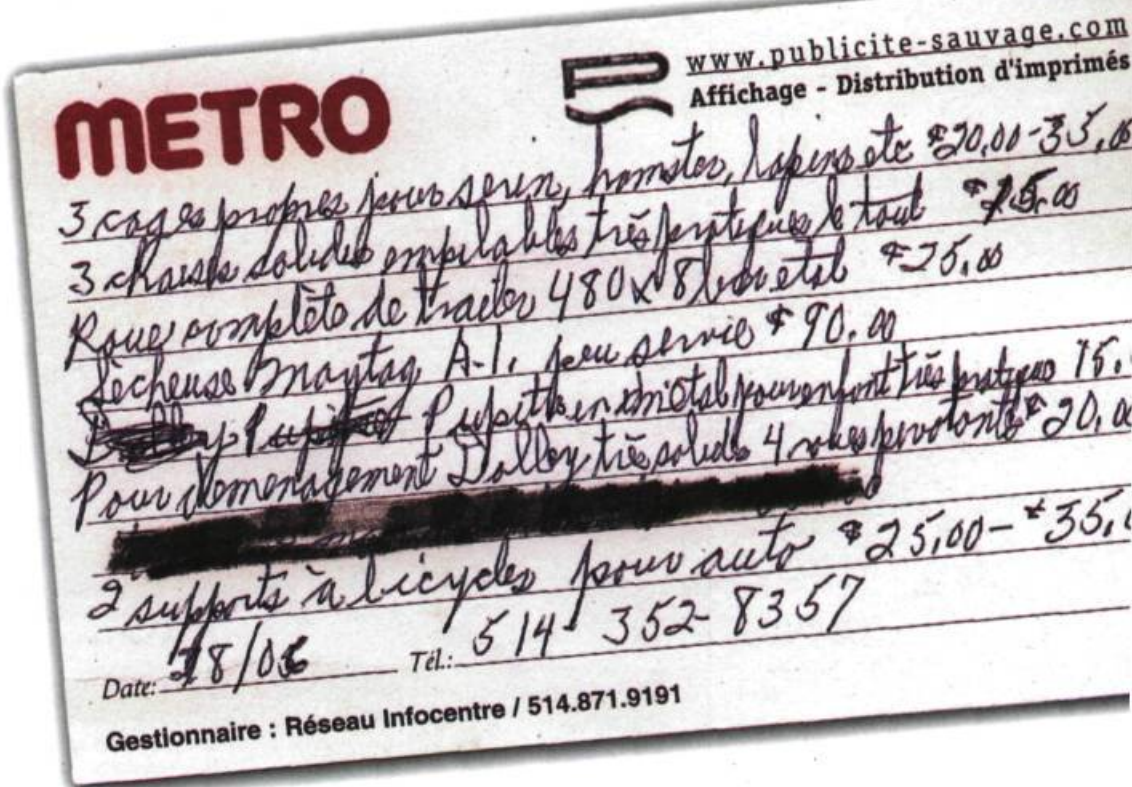 METRO
www.publicite-sauvage.com
Affichage - Distribution d'imprimés
3 cages propres pour serin, hamster, lapins etc $20.00-35,00
3 chaises solides empilables très pratiques le tout $25.00
Roue complète de trailer 480 x 8 $25,00
Sécheuse Maytag A-1, peu servie $90.00
Pupitre en métal pour enfant très pratique 15.
Pour demenagement Dolley très solide 4 roues pivotants $20,00
2 supports à bicycles pour auto $25,00-$35,
Date: 28/06 Tél.: 514-352-8357
Gestionnaire : Réseau Infocentre / 514.871.9191